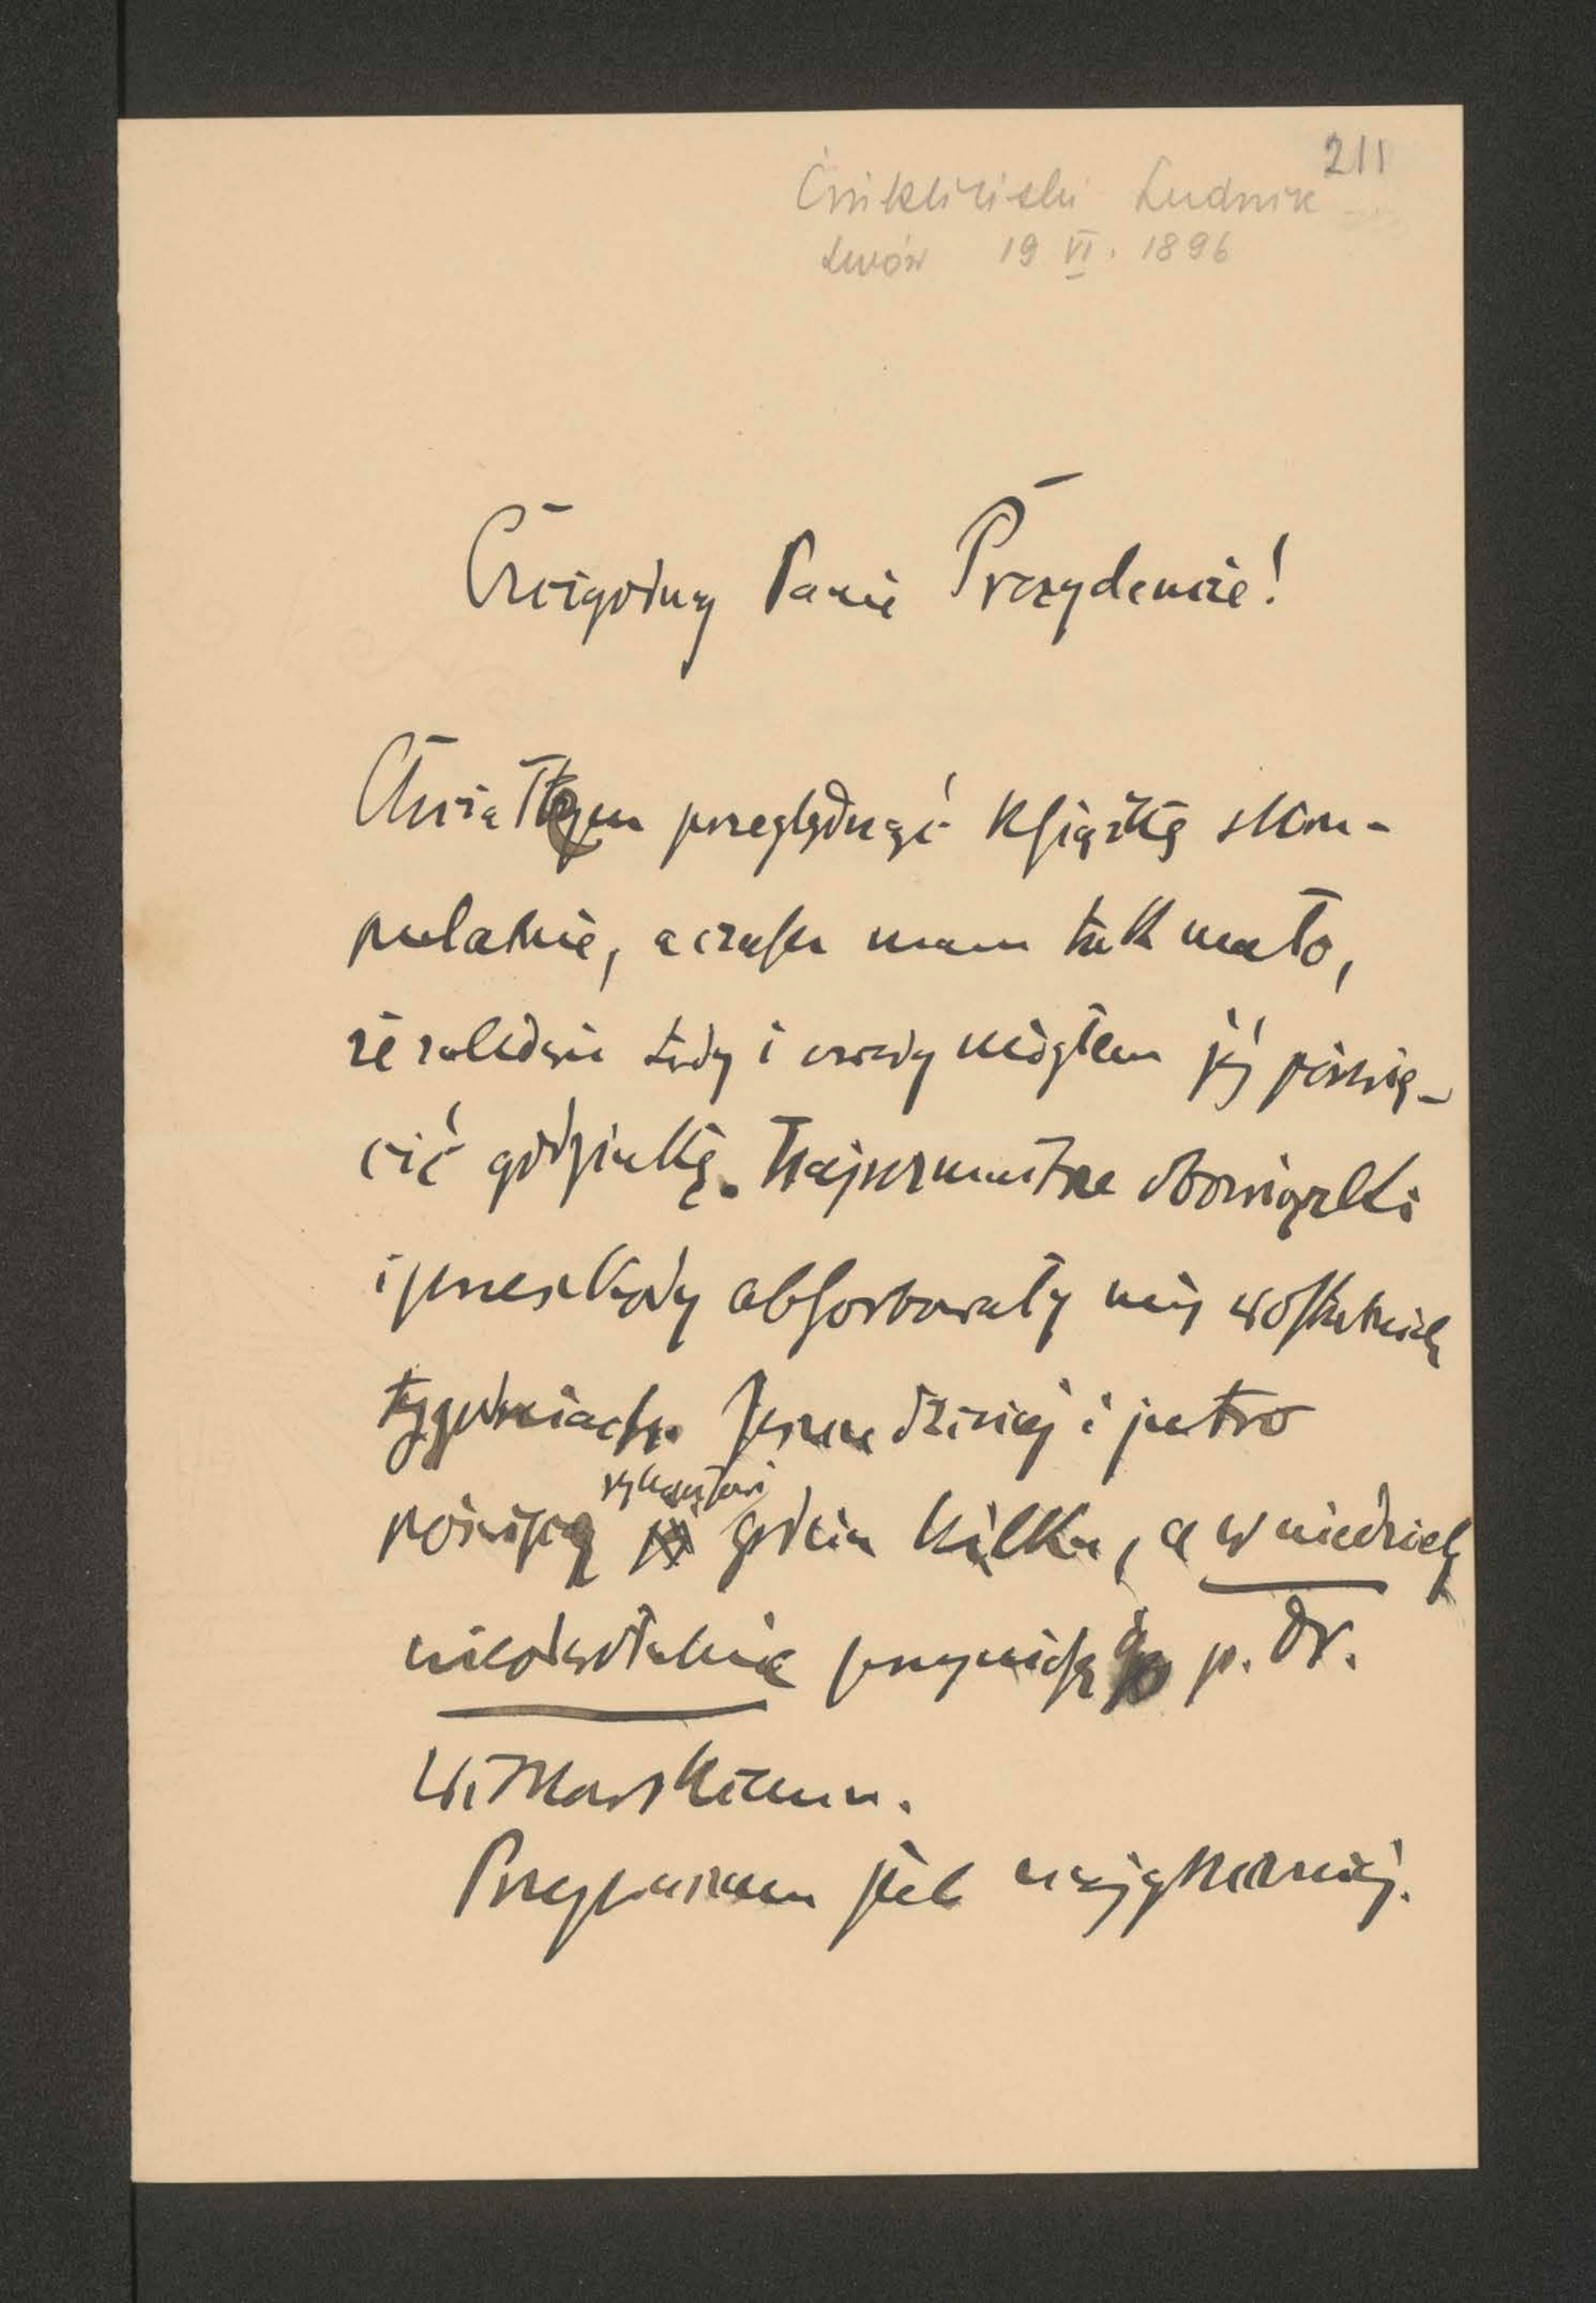 211
Ćwikliński Ludwik
Lwów 19 VI. 1896
Czcigodny Panie Prezydencie!
Chciałem przeglądnąć książkę skru-
pulatnie, a czasu mam tak mało,
że zaledwie tędy i owędy mógłem jej poświę-
cić godzinkę. Najrozmaitsze obowiązki
i przeszkody absorbowały mię w ostatnich
tygodniach. Jeszcze dzisiaj i jutro
poświęcę godzin kilka, a w niedzielę
nieodwołalnie przyniosę do p. Dr.
Witkowskiemu.
Przepraszam jak najgoręcej.